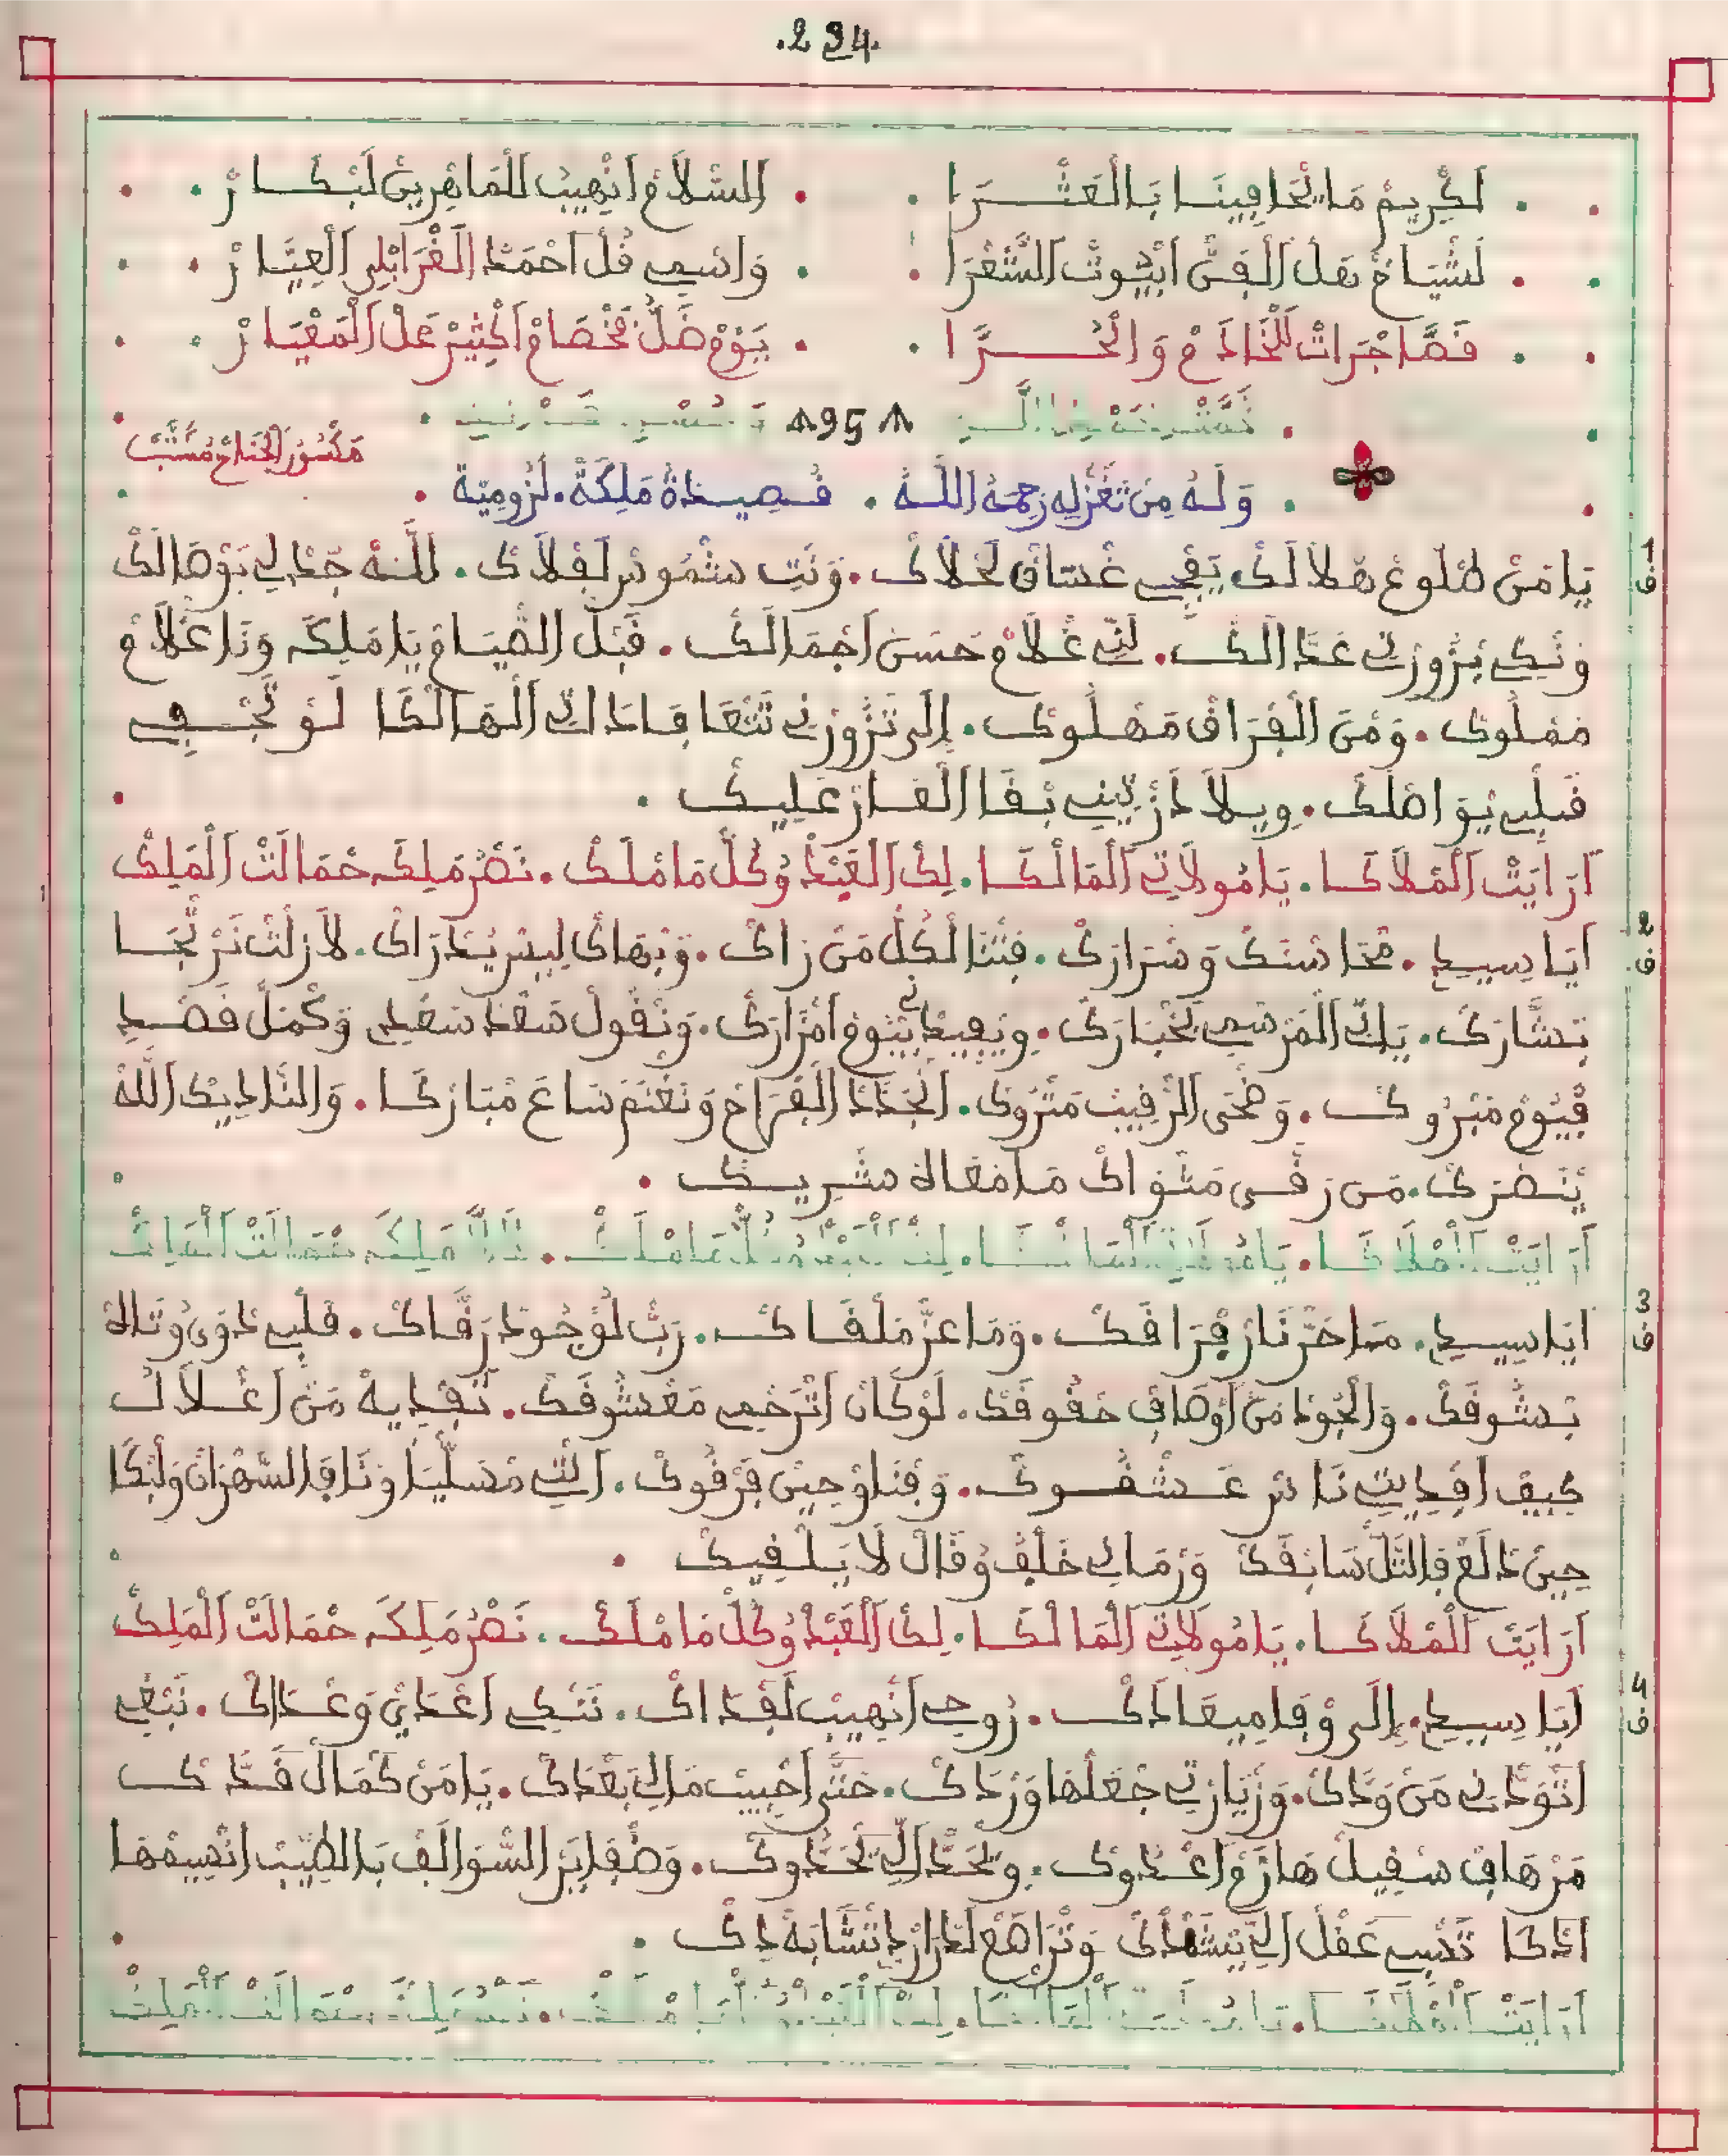 .294.
لَكْرِيمْ مَا يْحَافِينَا بَالْعَثْـــرَا . السّْلَامْ انْهِيبْ للْمَاهْرِينْ لَبْكَـــارْ
لَشْيَاخْ هَلْ الْفَنّْ ابْيُوتْ الشَّعْرَا . وَاسْمِي قُلْ احْمَدْ الْغْرَابْلِي الْعِيَّارْ
فَصَّاحْرَاتْ للْخَادَمْ وَالْحُـــرَّا . يَوْمْ ضَلُّ فَخْصَامْ اكْثِيرْ عَلْ الْمَعْيَارْ
195
مَكْسُورْ الجْنَاحْ مْشَتَّبْ
وَلَهُ مِنْ تَغَزُّلِهِ رَحِمَهُ اللَّه . قْصِيدَةْ مَلِكَة . لَزُومِيَّة
1 ف
يَا مَنْ طْلُوعْ هْلَالَكْ يَفْجِي غْسَاقْ لَحْلَاكْ . وَنْتِ شْمُوسْ لَفْلَاكْ . للَّهْ جُدْ لِي بَوْصَالَكْ
وَنْكِي بَزُّورْنِي عَدَّالَكْ . لَنِّي غْلَامْ حَسَنْ اجْمَالَكْ . قَبْلْ الصّْيَامْ يَا مَلِكَة وَنَا غْلَامْ
مَمْلُوكْ . وَمْنَ الْفْرَاقْ مَهْلُوكْ . إِلَى تْزُورْنِي نَتْعَافَا ذَاتِي الْهَالْكَا لَوْ تْجْفِي
قَلْبِي يْوَاصْلَكْ . وِيلَا دَرْتِينِي بْقَا الْعَارْ عْلِيكْ .
آرَايَتْ الْمْلَاكَا . يَا مُولَاتِي الْمَالْكَا . لِكْ الْعَبْدْ وُكُلّْ مَا مْلَكْ . نَصْرْ مَلِكَة حْمَالَتْ الْمَلِكْ
2 ف
آيَا سِيدِي . مْحَاسْنَكْ وَسْرَارَكْ . فِتْنَا لْكُلّْ مَنْ رَاكْ . وَبْهَاكْ لِيسْ يُدْرَاكْ . لَازَلْتْ نَرْتْجَا
بَشَّارَكْ . يَاتِي الْمَرْسْمِي بَخْبَارَكْ . وِيْفِيدْنِي بْيُومْ امْزَارَكْ . وَنْقُولْ سْعَدْ سَعْدِي وَكْمَلْ قَصْدِي
فْيُومْ مَبْرُوكْ . وَضْحَى الرّْقِيبْ مَتْرُوكْ . انْجَدَّدْ الْفْرَاحْ وَنْغْنَمْ سَاعَ مْبَارْكَا . وَانَادِيكْ اللَّهْ
يَنْصْرَكْ . مَنْ رَقَّى مَثْوَاكْ مَا مْعَاهْ شْرِيكْ .
آرَايَتْ الْمْلَاكَا . يَا مُولَاتِي الْمَالْكَا . لِكْ الْعَبْدْ وُكُلّْ مَا مْلَكْ . نَصْرْ مَلِكَة حْمَالَتْ الْمَلِكْ
3 ف
آيَا سِيدِي . مَا حَرّْ نَارْ فْرَاقَكْ . وَمَا عَزّْ مَلْقَاكْ . رَبّْ لَوْجُودْ رَقَّاكْ . قَلْبِي دْوَى وْتَاهْ
بْشُوقَكْ . وَالْجُودْ مَنْ اوْصَافْ حْقُوقَكْ . لَوْ كَانْ اتْرَحْمِي مَعْشُوقَكْ . تَفْدِيهْ مَنْ اغْلَالْ
كِيفْ افْدِيتِي نَاسْ عَشْقُوكْ . وَفْنَاوْ حِينْ فَرْقُوكْ . انْتِي مْسَلْيَا وَنَا فِالسَّهْرَانْ وَلْبْكَا
حِينْ دَالَعْ فِالتّْلّْ سَابْقَكْ وَرْمَانِي خَلْفْ وْقَالْ لَا يَلْقِيكْ .
آرَايَتْ الْمْلَاكَا . يَا مُولَاتِي الْمَالْكَا . لِكْ الْعَبْدْ وُكُلّْ مَا مْلَكْ . نَصْرْ مَلِكَة حْمَالَتْ الْمَلِكْ
4 ف
آيَا سِيدِي . إِلَى وْفَا مِيعَادَكْ . رُوحِي انْهِيبْ لَفْدَاكْ . نَنْكِي اعْدَايْ وَعْدَاكْ . نَبْغِي
اتْوَدّْنِي مَنْ وَدَّكْ . وَزْيَارْتِي جْعَلْهَا وَرْدَكْ . حَتَّى احْيِيتْ مَا لِي بَعْدَكْ . يَا مَنْ كْمَالْ قَدَّكْ
مَرْهَافْ سْقِيلْ هَازَمْ اعْدُوكْ . وِيْحَدّْ الِّي يْحَدُّوكْ . وَضْفَايَرْ السّْوَالَفْ بَالطِّيبْ انْسِيمْهَا
اذْكَا تَسْبِي عَقْلْ الِّي يْشَهْدَكْ وَتْرَاصَعْ لَدْرَارْ اتْشَابَهْ دِيكْ .
آرَايَتْ الْمْلَاكَا . يَا مُولَاتِي الْمَالْكَا . لِكْ الْعَبْدْ وُكُلّْ مَا مْلَكْ . نَصْرْ مَلِكَة حْمَالَتْ الْمَلِكْ